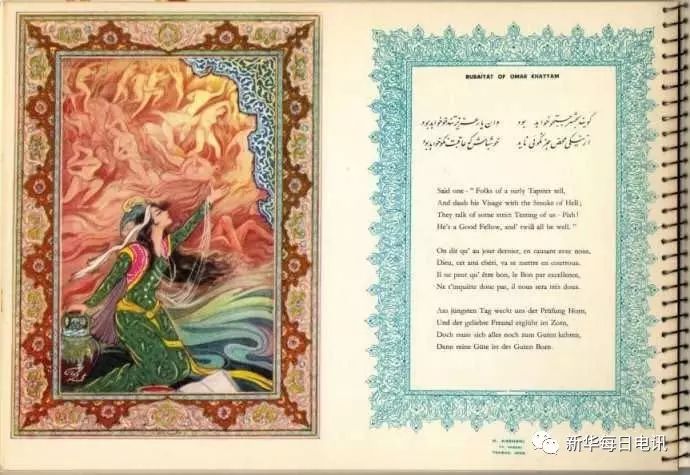 RUBAIYAT OF OMAR KHAYYAM
گویند بحشر جستجو خواهد بود وان یار عزیز تندخو خواهد بود
از نیکی محض جز نکوئی ناید خوش باش که عاقبت نکو خواهد بود
Said one - " Folks of a surly Tapster tell,
And daub his Visage with the Smoke of Hell;
They talk of some strict Testing of us - Pish!
He's a Good Fellow, and 'twill all be well. "
On dit qu' au jour dernier, en causant avec nous,
Dieu, cet ami chéri, va se mettre en courroux.
Il ne peut qu' être bon, le Bon par excellence,
Ne t'inquiète donc pas, il nous sera très doux.
Am jüngsten Tag weckt uns der Prüfung Horn,
Und der geliebte Freund erglüht im Zorn,
Doch muss sich alles noch zum Guten kehren,
Denn reine Güte ist der Guten Born.
新华每日电讯